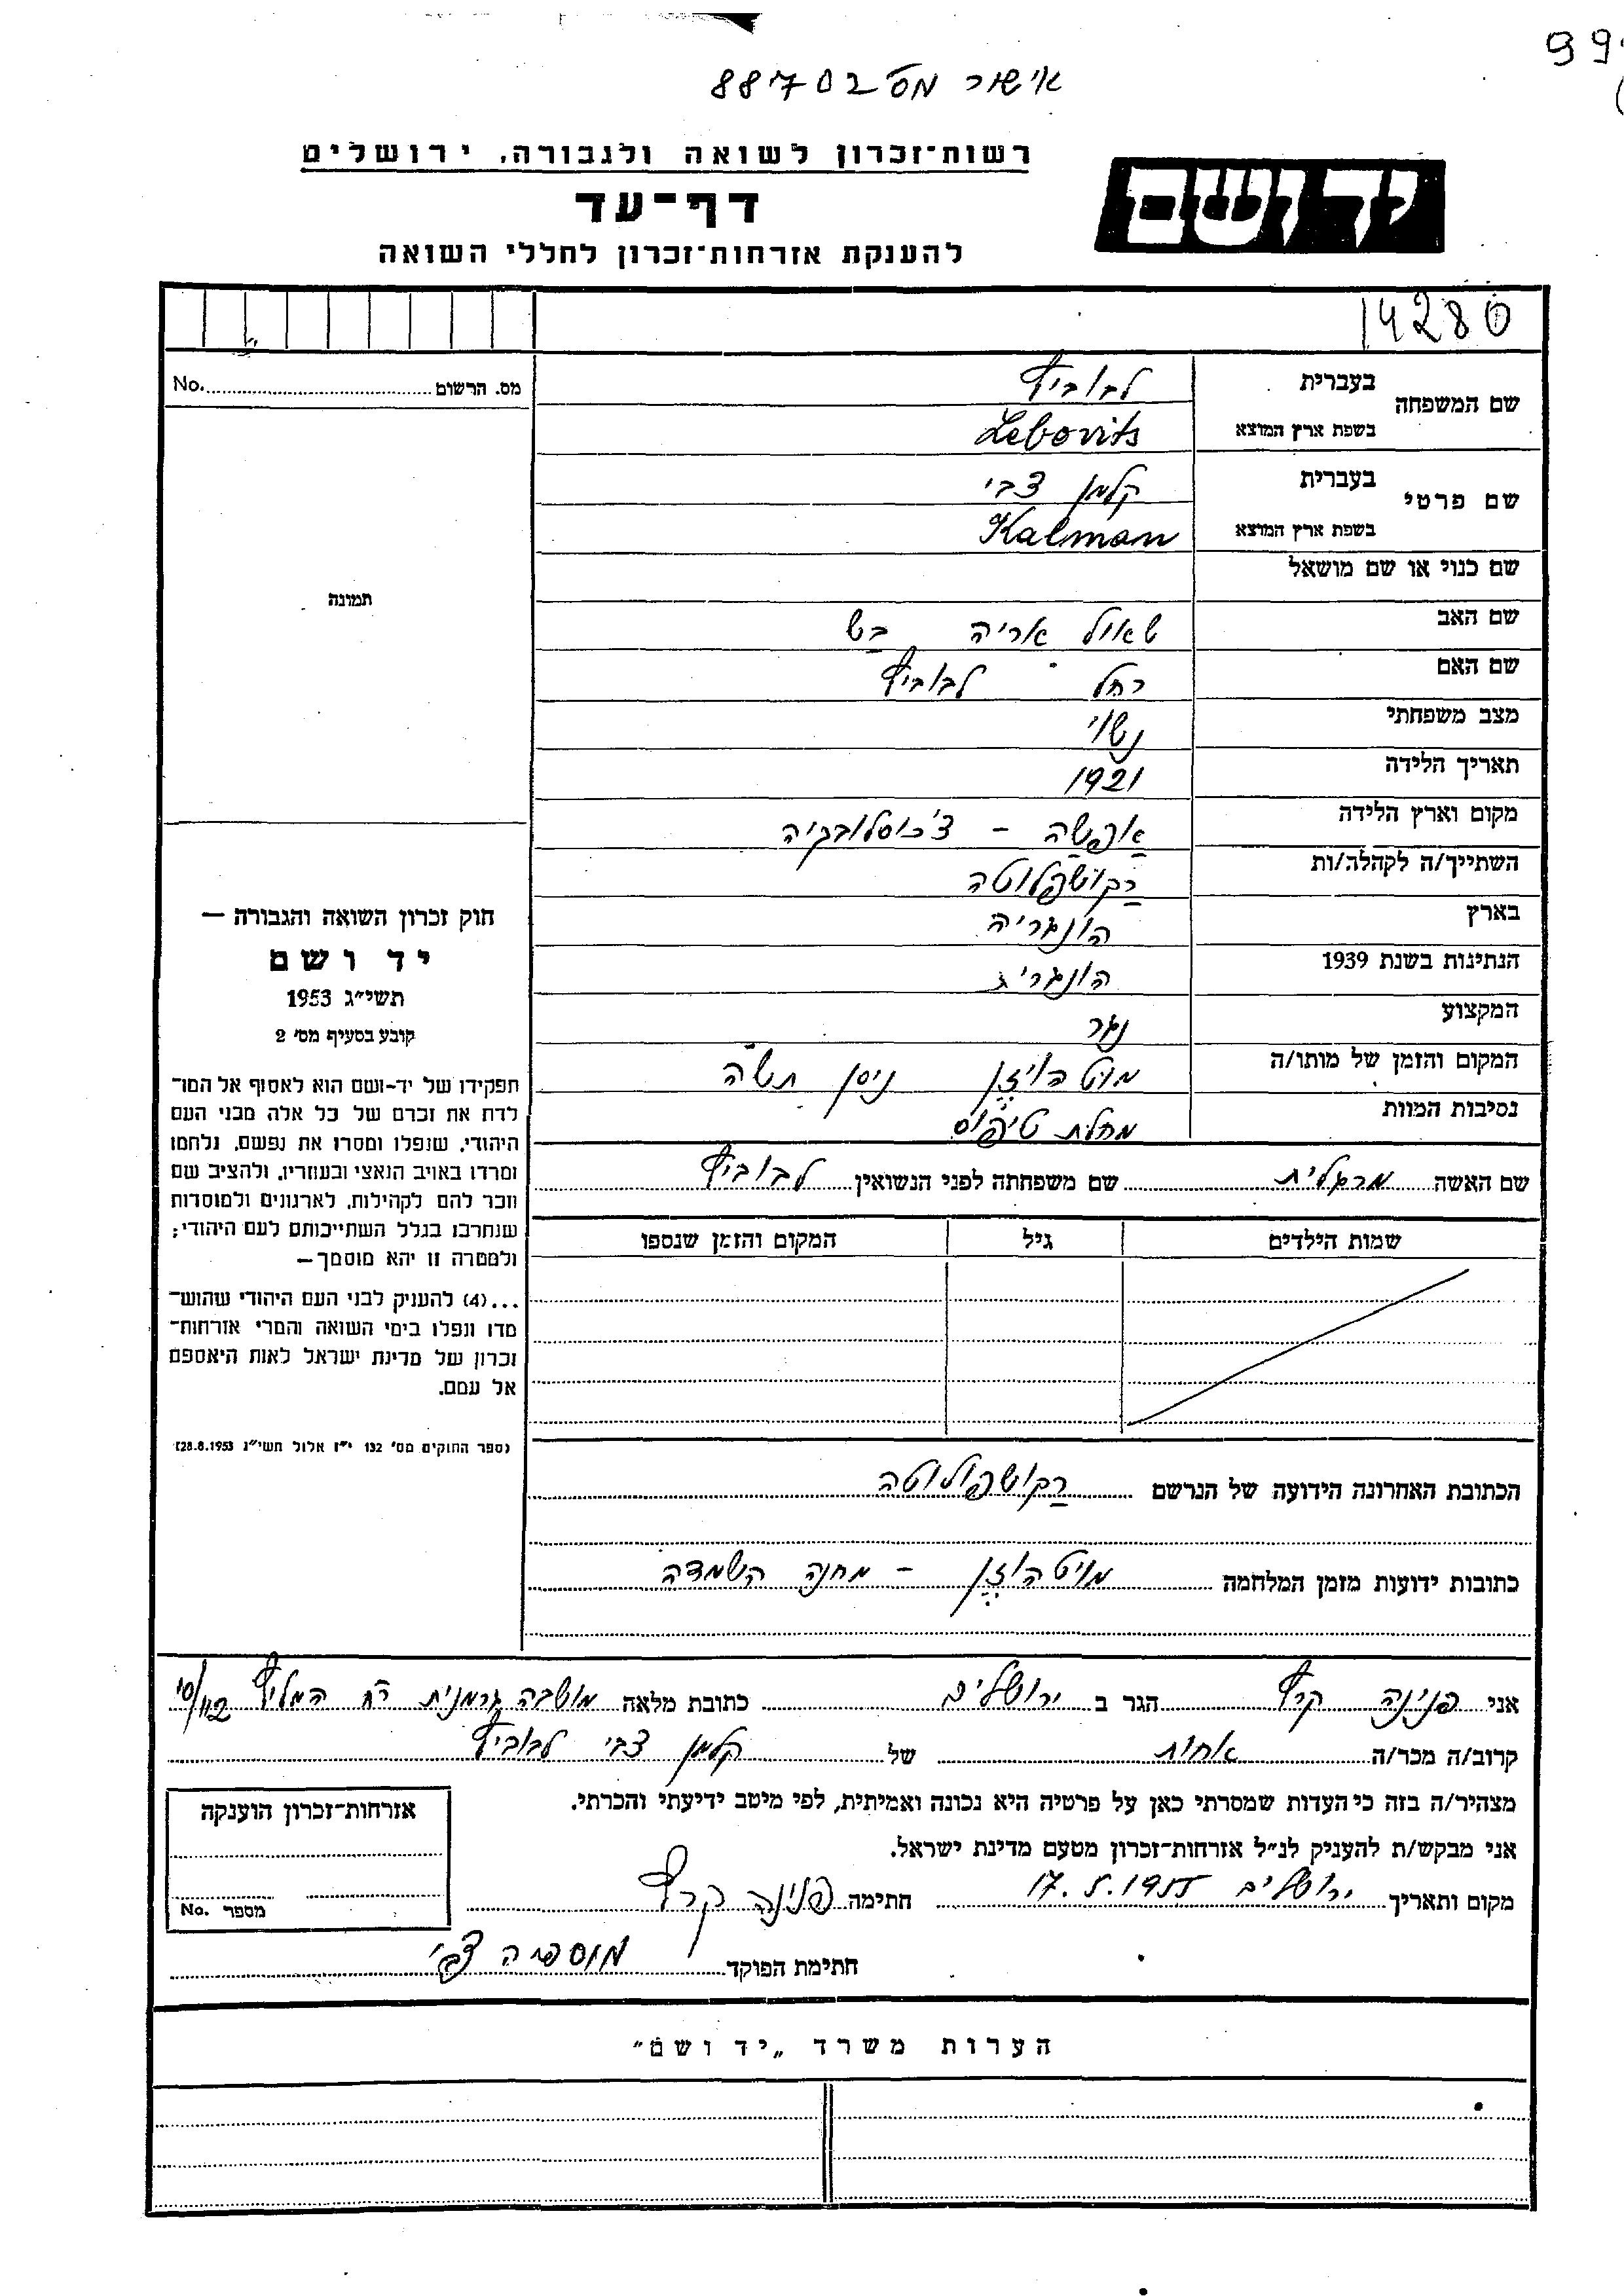 99
אישור מס' 88702
רשות־זכרון לשואה ולגבורה, ירושלים
דף־עד
להענקת אזרחות־זכרון לחללי השואה
יד ושם
14280
שם המשפחה בעברית לבוביץ
בשפת ארץ המוצא Lebovits
שם פרטי בעברית קלמן צבי
בשפת ארץ המוצא Kalman
שם כנוי או שם מושאל
שם האב שאול אריה בש
שם האם רחל לבוביץ
מצב משפחתי נשוי
תאריך הלידה 1921
מקום וארץ הלידה אפשה - צ'כוסלובקיה
השתייך/ה לקהלה/ות רקושפלוטה
בארץ הונגריה
הנתינות בשנת 1939 הונגרית
המקצוע נגר
המקום והזמן של מותו/ה מוטהויזן ניסן תש"ה
נסיבות המוות מחלת טיפוס
שם האשה מרגלית שם משפחתה לפני הנשואין לבוביץ
שמות הילדים גיל המקום והזמן שנספו
הכתובת האחרונה הידועה של הנרשם רקושפולוטה
כתובות ידועות מזמן המלחמה מויטהוזן - מחנה השמדה
מס. הרשום No.
תמונה
חוק זכרון השואה והגבורה —
יד ושם
תשי״ג 1953
קובע בסעיף מס׳ 2
תפקידו של יד-ושם הוא לאסוף אל המו־
לדת את זכרם של כל אלה מבני העם
היהודי, שנפלו ומסרו את נפשם, נלחמו
ומרדו באויב הנאצי ובעוזריו, ולהציב שם
וזכר להם לקהילות, לארגונים ולמוסדות
שנחרבו בגלל השתייכותם לעם היהודי;
ולמטרה זו יהא מוסמך—
...(4) להעניק לבני העם היהודי שהוש־
מדו ונפלו בימי השואה והמרי אזרחות־
זכרון של מדינת ישראל לאות היאספם
אל עמם.
(ספר החוקים מס׳ 132 י״ז אלול תשי״ג 28.8.1953)
אני פנינה קרץ הגר ב ירושלים כתובת מלאה מושבה גרמנית רח המליץ 10/42
קרוב/ה מכר/ה אחות של קלמן צבי לבוביץ
מצהיר/ה בזה כי העדות שמסרתי כאן על פרטיה היא נכונה ואמיתית, לפי מיטב ידיעתי והכרתי.
אני מבקש/ת להעניק לנ״ל אזרחות־זכרון מטעם מדינת ישראל.
מקום ותאריך ירושלים 17.5.1955 חתימה פנינה קרץ
חתימת הפוקד מוספיה צבי
אזרחות־זכרון הוענקה
מספר No.
הערות משרד „יד ושם״